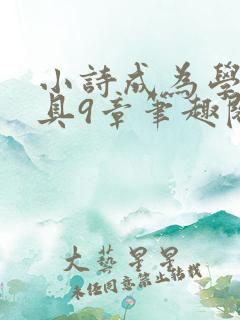 小詩成為學
具9章筆趣閣
大藝星星
未經同意禁止轉載